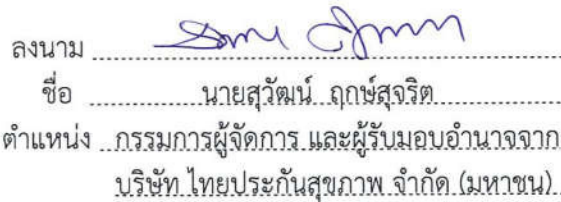 ลงนาม
ชื่อ นายสุวัฒน์ ฤกษ์สุจริต
ตำแหน่ง กรรมการผู้จัดการ และผู้รับมอบอำนาจจาก
บริษัท ไทยประกันสุขภาพ จำกัด (มหาชน)